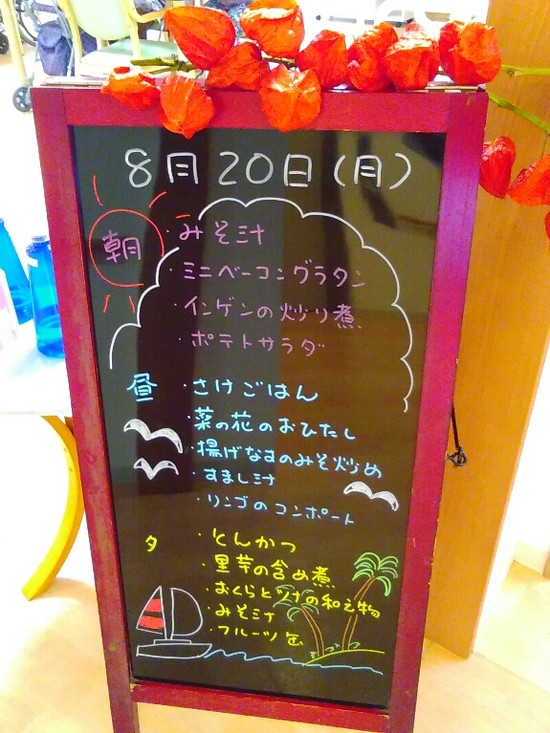 8月20日(月)
朝
・みそ汁
・ミニベーコングラタン
・インゲンの炒り煮
・ポテトサラダ
昼
・さけごはん
・菜の花のおひたし
・揚げなすのみそ炒め
・すまし汁
・リンゴのコンポート
夕
・とんかつ
・里芋の含め煮
・おくらとツナの和え物
・みそ汁
・フルーツ缶